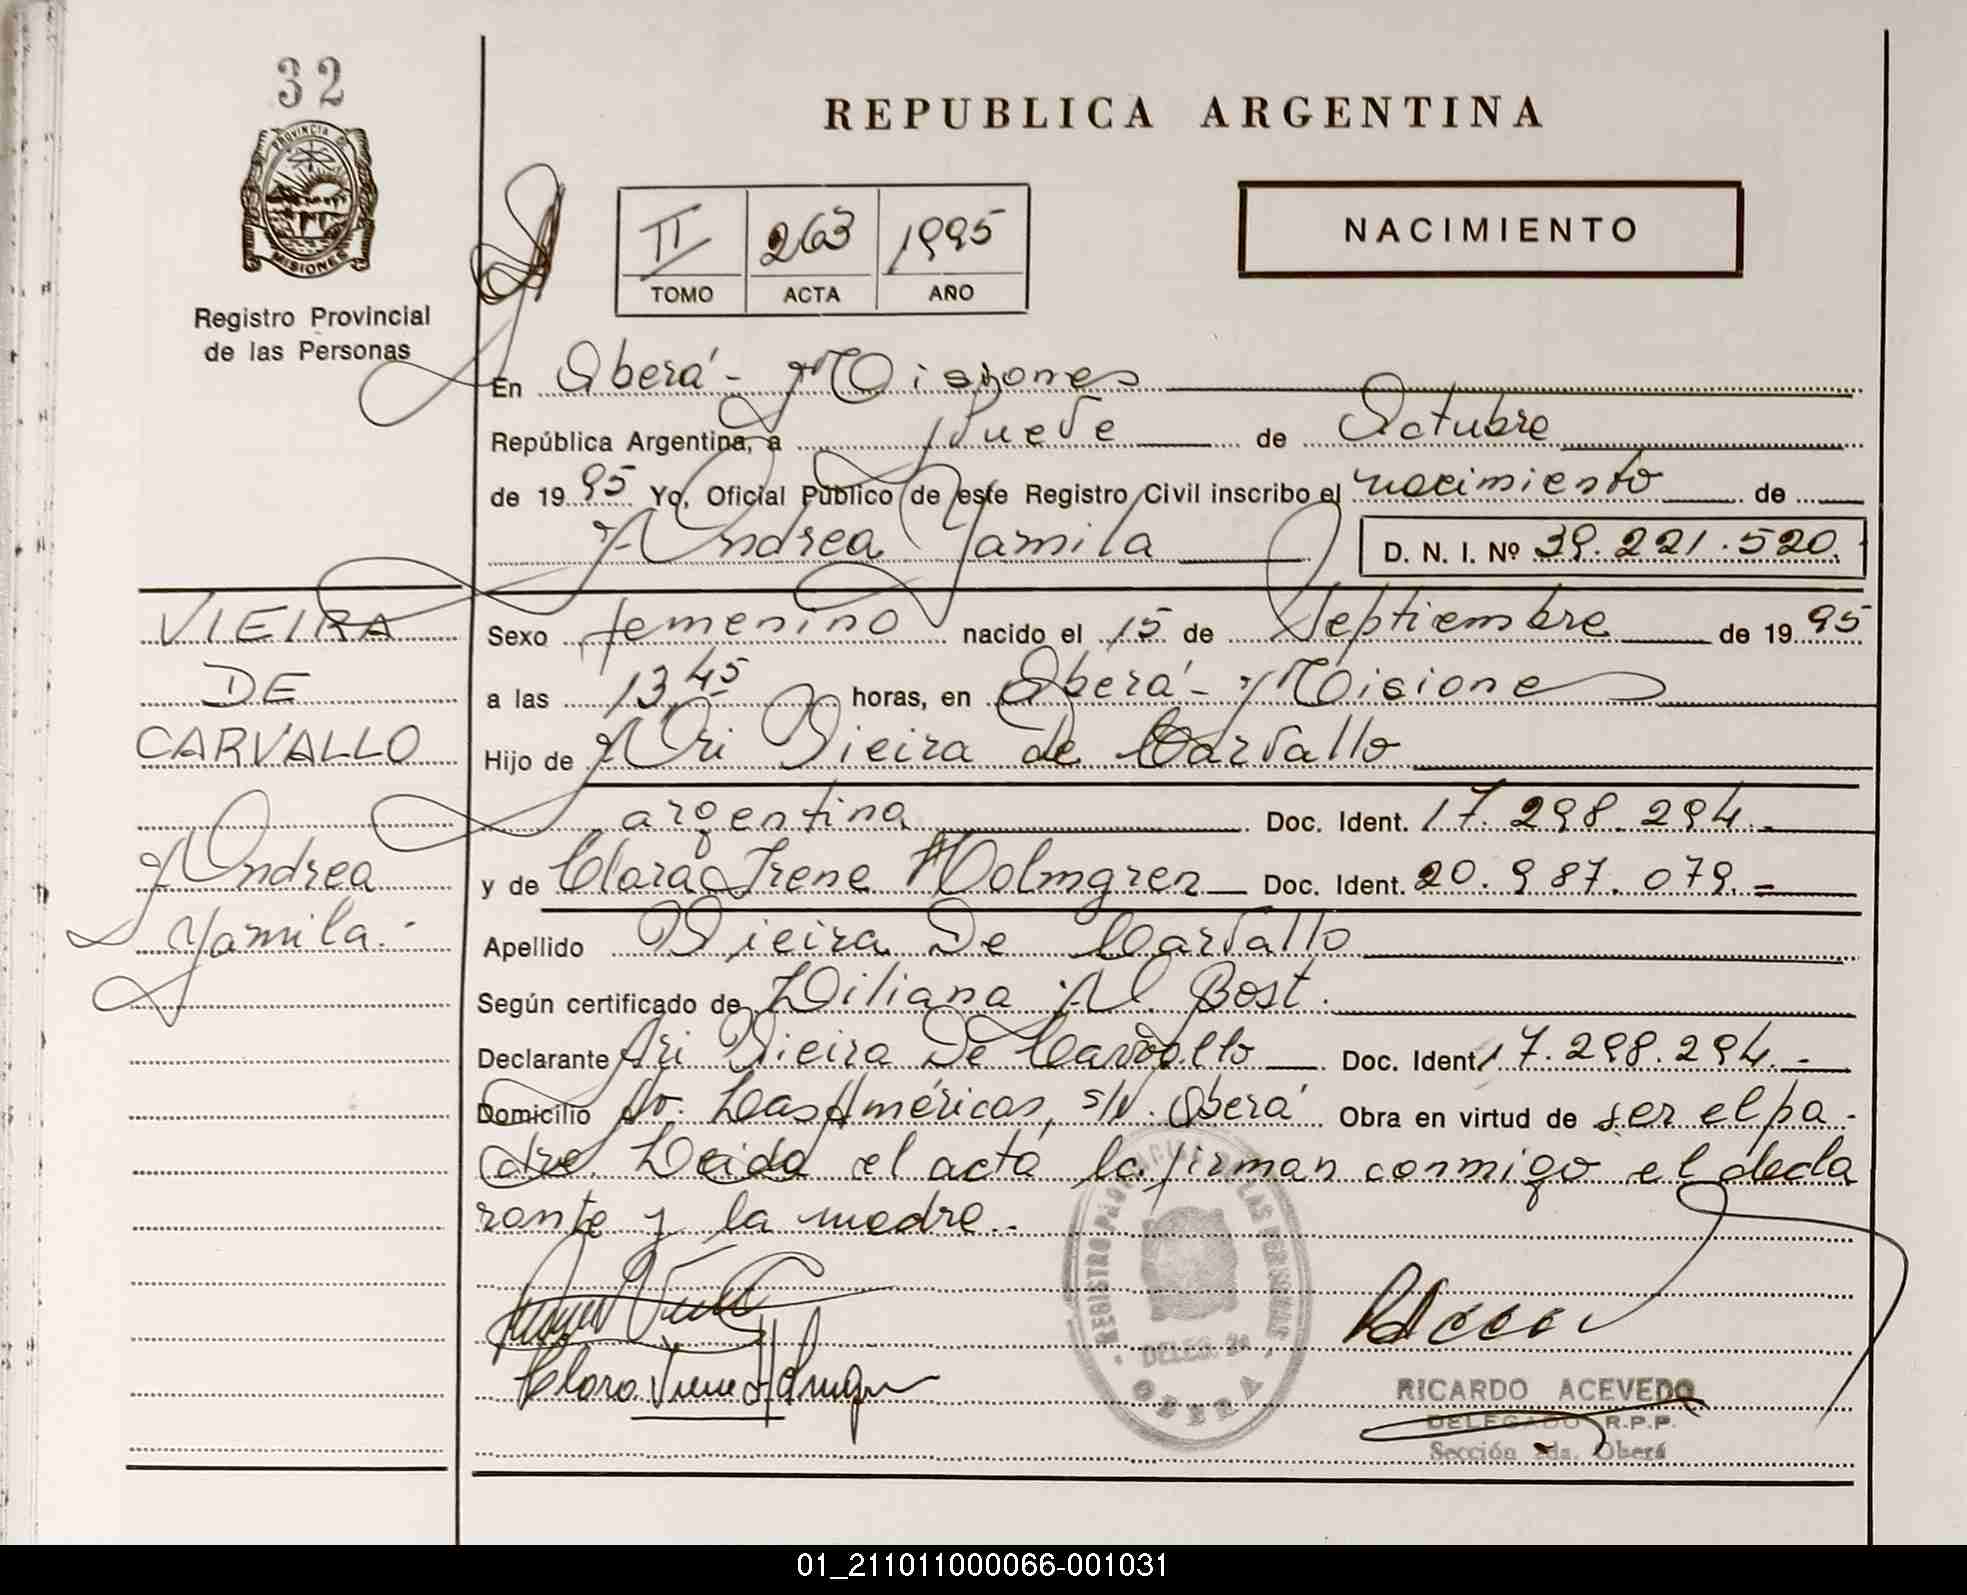 32
PROVINCIA DE
MISIONES
Registro Provincial
de las Personas
REPUBLICA ARGENTINA
II 263 1995
TOMO ACTA AÑO
NACIMIENTO
En Oberá - Misiones
República Argentina, a Nueve de Octubre
de 1995 Yo, Oficial Público de este Registro Civil inscribo el nacimiento de
Andrea Yamila D. N. I. Nº 39.221.520.
VIEIRA
DE
CARVALLO
Andrea
Yamila.-
Sexo femenino nacido el 15 de Septiembre de 1995
a las 13,45 horas, en Oberá - Misiones
Hijo de Ari Vieira de Carvallo
argentina Doc. Ident. 17.298.294.-
y de Clara Irene Holmgren Doc. Ident. 20.987.079.=
Apellido Vieira De Carvallo
Según certificado de Liliana A. Bost.
Declarante Ari Vieira De Carvallo Doc. Ident. 17.298.294.-
Domicilio Av. Las Américas, s/N. Oberá Obra en virtud de ser el pa-
dre. Leida el acta la firman conmigo el decla
rante y la madre.-
REGISTRO PROVINCIAL DE LAS PERSONAS
DELEG. 2a
OBERA
RICARDO ACEVEDO
DELEGADO R.P.P.
Sección 2da. Oberá
01_211011000066-001031